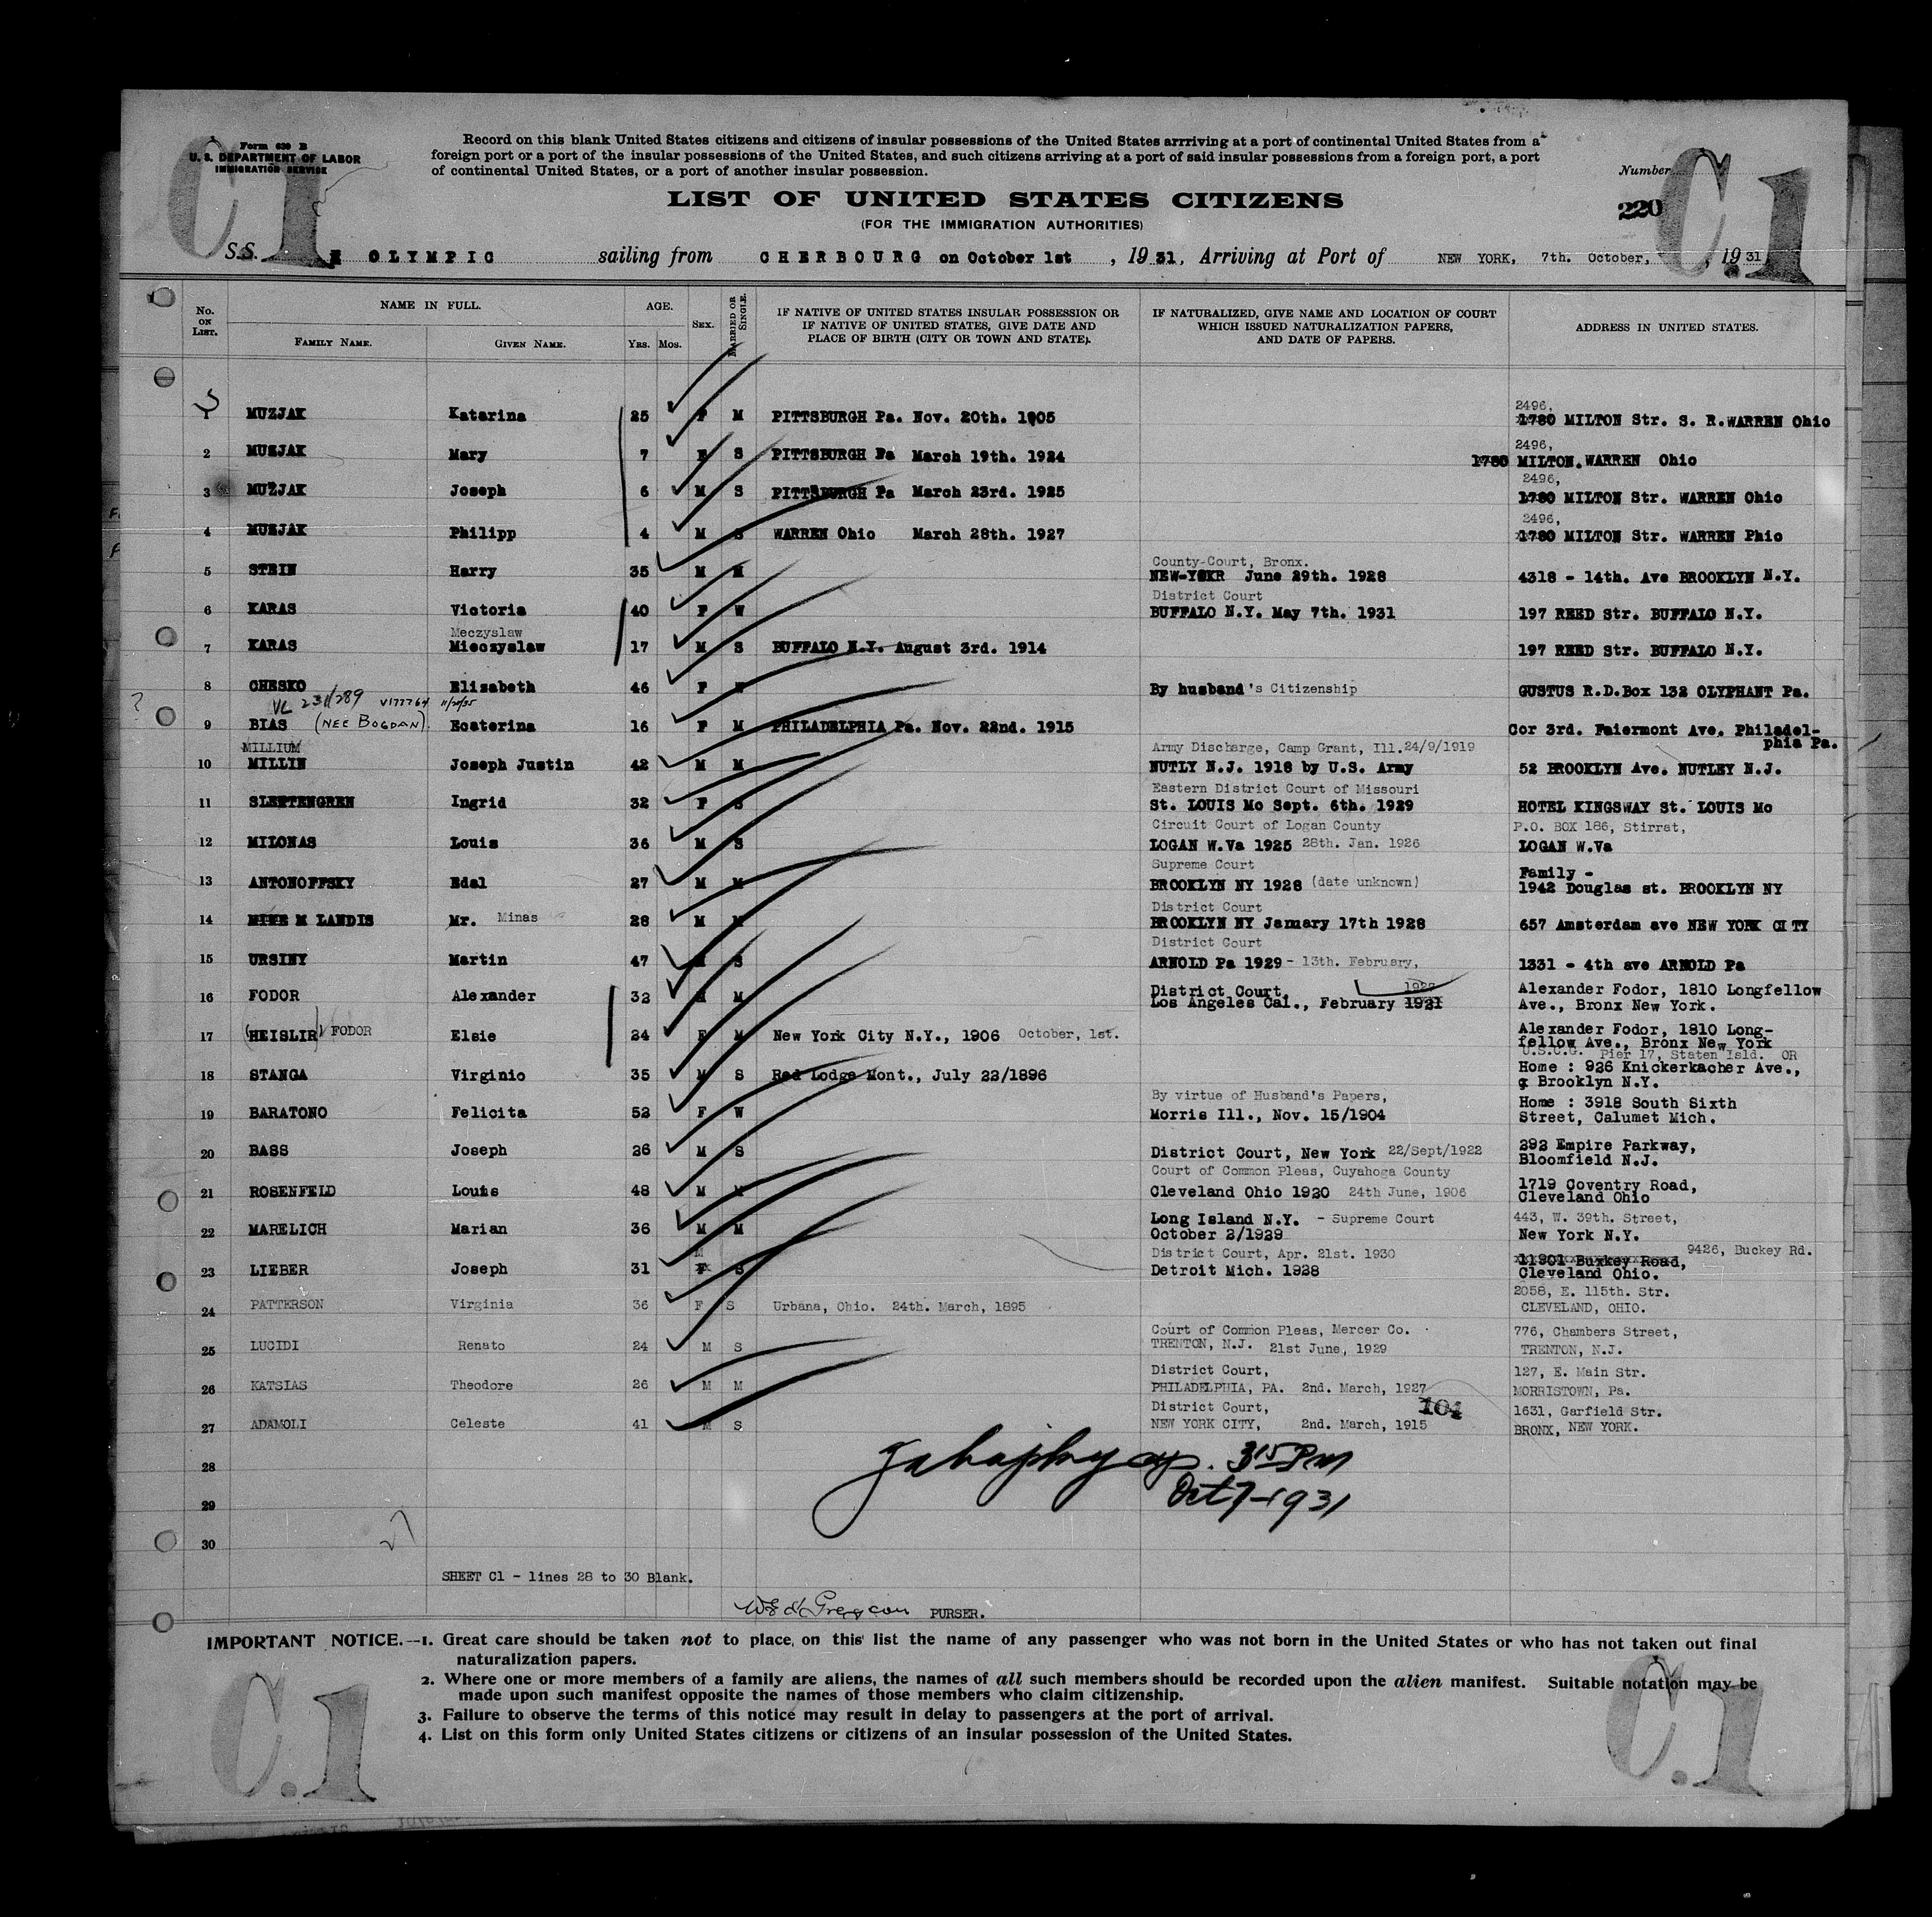 C1
Form 630 B
U. S. DEPARTMENT OF LABOR
IMMIGRATION SERVICE
Record on this blank United States citizens and citizens of insular possessions of the United States arrriving at a port of continental United States from a
foreign port or a port of the insular possessions of the United States, and such citizens arriving at a port of said insular possessions from a foreign port, a port
of continental United States, or a port of another insular possession.
Number
C1
LIST OF UNITED STATES CITIZENS
220
(FOR THE IMMIGRATION AUTHORITIES)
S.S. OLYMPIC sailing from CHERBOURG on October 1st , 19 31, Arriving at Port of NEW YORK, 7th. October, , 19 31
No. ON LIST. NAME IN FULL. AGE. SEX. MARRIED OR SINGLE. IF NATIVE OF UNITED STATES INSULAR POSSESSION OR IF NATIVE OF UNITED STATES, GIVE DATE AND PLACE OF BIRTH (CITY OR TOWN AND STATE). IF NATURALIZED, GIVE NAME AND LOCATION OF COURT WHICH ISSUED NATURALIZATION PAPERS, AND DATE OF PAPERS. ADDRESS IN UNITED STATES.
FAMILY NAME. GIVEN NAME. Yrs. Mos.
2496,
1 MUZJAK Katarina 25 F M PITTSBURGH Pa. Nov. 20th. 1905 1780 MILTON Str. S. R.WARREN Ohio
2496,
2 MUZJAK Mary 7 F S PITTSBURGH Pa March 19th. 1924 1780 MILTON. WARREN Ohio
2496,
3 MUZJAK Joseph 6 M S PITTSBURGH Pa March 23rd. 1925 1780 MILTON Str. WARREN Ohio
2496,
4 MUZJAK Philipp 4 M S WARREN Ohio March 28th. 1927 1780 MILTON Str. WARREN Phio
County-Court, Bronx.
5 STEIN Harry 35 M M NEW-YOKR June 29th. 1928 4318 - 14th. Ave BROOKLYN N.Y.
District Court
6 KARAS Victoria 40 F W BUFFALO N.Y. May 7th. 1931 197 REED Str. BUFFALO N.Y.
Meczyslaw
7 KARAS Mieczyslaw 17 M S BUFFALO N.Y. August 3rd. 1914 197 REED Str. BUFFALO N.Y.
8 CHESKO Elisabeth 46 F By husband's Citizenship GUSTUS R.D.Box 132 OLYPHANT Pa.
VL 231/289 V177764 11/20/35
9 BIAS (NEE BOGDAN). Ecaterina 16 F M PHILADELPHIA Pa. Nov. 22nd. 1915 Cor 3rd. Faiermont Ave. Philadel-
phia Pa.
MILLIUM Army Discharge, Camp Grant, Ill.24/9/1919
10 MILLIN Joseph Justin 42 M M NUTLY N.J. 1918 by U.S. Army 52 BROOKLYN Ave. NUTLEY N.J.
Eastern District Court of Missouri
11 SLETTENGREN Ingrid 32 F S St. LOUIS Mo Sept. 6th. 1929 HOTEL KINGSWAY St. LOUIS Mo
Circuit Court of Logan County P.O. BOX 186, Stirrat,
12 MILONAS Louis 36 M S LOGAN W.Va 1925 28th. Jan. 1926 LOGAN W.Va
Supreme Court Family -
13 ANTONOFFSKY Edal 27 M M BROOKLYN NY 1928 (date unknown) 1942 Douglas st. BROOKLYN NY
District Court
14 MIKE M LANDIS Mr. Minas 28 M M BROOKLYN NY January 17th 1928 657 Amsterdam ave NEW YORK CITY
District Court
15 URSINY Martin 47 M S ARNOLD Pa 1929 - 13th. February, 1331 - 4th ave ARNOLD Pa
District Court, 1927 Alexander Fodor, 1810 Longfellow
16 FODOR Alexander 32 M M Los Angeles Cal., February 1921 Ave., Bronx New York.
Alexander Fodor, 1810 Long-
17 (HEISLIR) FODOR Elsie 24 F M New York City N.Y., 1906 October, 1st. fellow Ave., Bronx New York
U.S.C.G. Pier 17, Staten Isld. OR
18 STANGA Virginio 35 M S Red Lodge Mont., July 22/1896 Home : 926 Knickerkacher Ave.,
Brooklyn N.Y.
By virtue of Husband's Papers, Home : 3918 South Sixth
19 BARATONO Felicita 52 F W Morris Ill., Nov. 15/1904 Street, Calumet Mich.
292 Empire Parkway,
20 BASS Joseph 26 M S District Court, New York 22/Sept/1922 Bloomfield N.J.
Court of Common Pleas, Cuyahoga County 1719 Coventry Road,
21 ROSENFELD Louis 48 M M Cleveland Ohio 1920 24th June, 1906 Cleveland Ohio
Long Island N.Y. - Supreme Court 443, W. 39th. Street,
22 MARELICH Marian 36 M M October 2/1929 New York N.Y.
M District Court, Apr. 21st. 1930 9426, Buckey Rd.
23 LIEBER Joseph 31 F S Detroit Mich. 1928 11901 Buxkey Road,
Cleveland Ohio.
2058, E. 115th. Str.
24 PATTERSON Virginia 36 F S Urbana, Ohio. 24th. March, 1895 CLEVELAND, OHIO.
Court of Common Pleas, Mercer Co. 776, Chambers Street,
25 LUCIDI Renato 24 M S TRENTON, N.J. 21st June, 1929 TRENTON, N.J.
District Court, 127, E. Main Str.
26 KATSIAS Theodore 26 M M PHILADELPHIA, PA. 2nd. March, 1927 MORRISTOWN, Pa.
District Court, 104 1631, Garfield Str.
27 ADAMOLI Celeste 41 M S NEW YORK CITY, 2nd. March, 1915 BRONX, NEW YORK.
28
3 15 PM
29
Oct 7-1931
30
27
SHEET C1 - lines 28 to 30 Blank.
PURSER.
IMPORTANT NOTICE.--1. Great care should be taken not to place on this list the name of any passenger who was not born in the United States or who has not taken out final
naturalization papers.
2. Where one or more members of a family are aliens, the names of all such members should be recorded upon the alien manifest. Suitable notation may be
made upon such manifest opposite the names of those members who claim citizenship.
3. Failure to observe the terms of this notice may result in delay to passengers at the port of arrival.
4. List on this form only United States citizens or citizens of an insular possession of the United States.
C.1
C.1